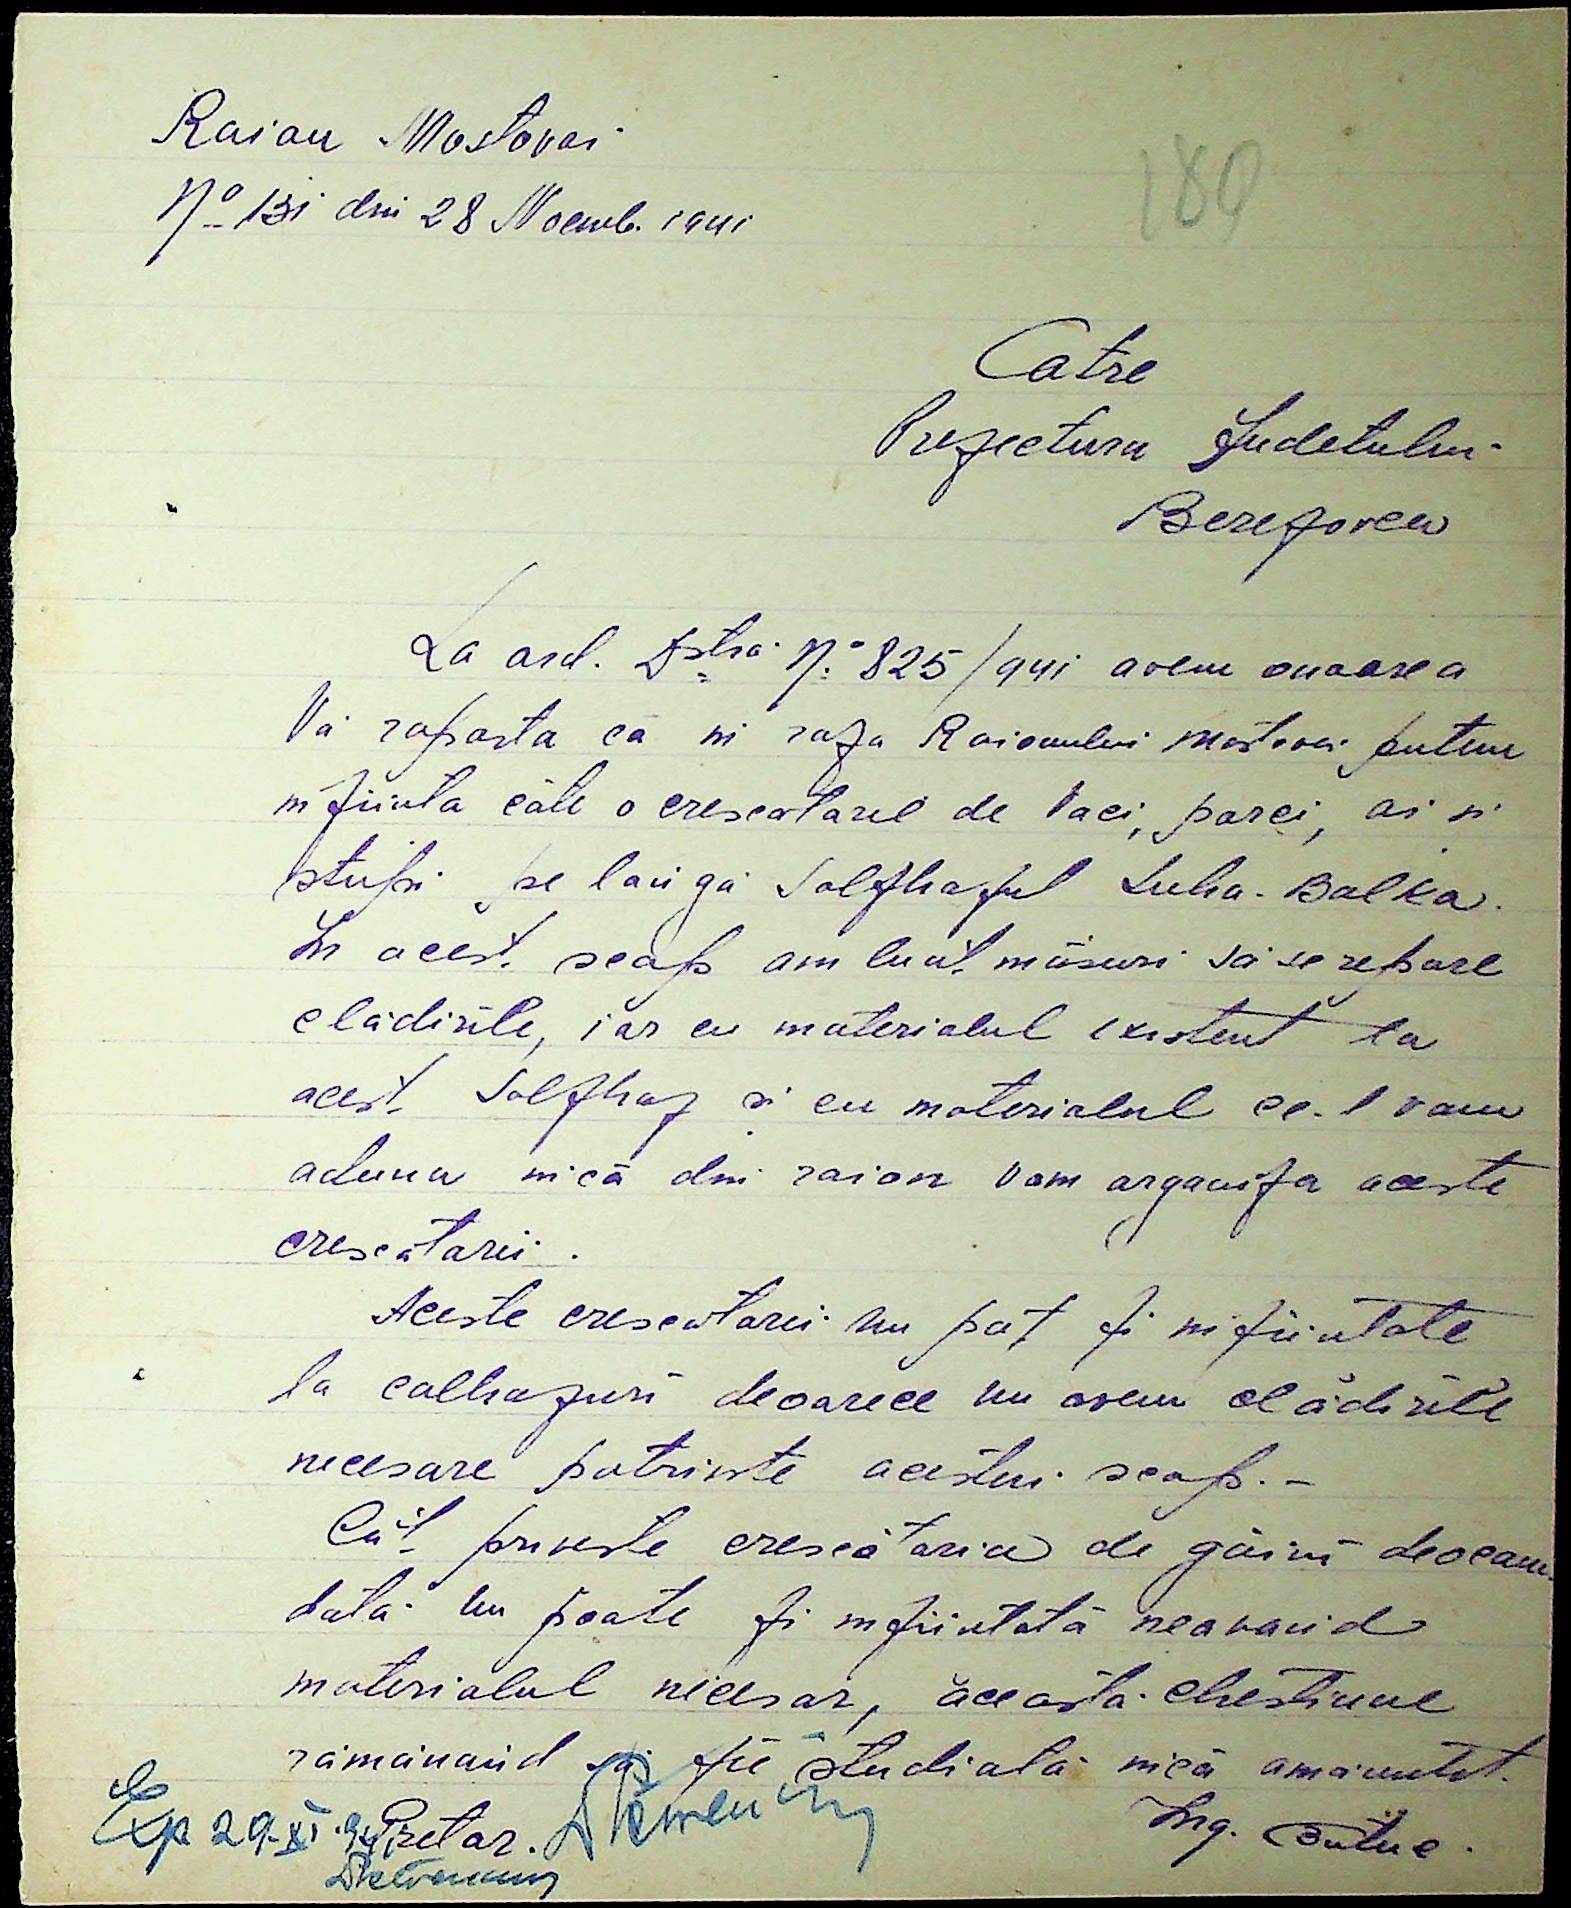 Raion Mostovoi
No 131 din 28 Noemb. 1941
189
Catre
Prefectura Judetului
Berezovca
La ord. Dstră No 825/941 avem onoarea
Vă raporta că in raza Raionului Mostovoi putem
infiinta câte o crescatorie de Vaci, porci, oi si
stupi pe langă Solfhozul Suha-Balka.
In acest scop am luat măsuri să se repare
clădirile, iar cu materialul existent la
acest Solfhoz si cu materialul ce-l vom
aduna incă din raion vom organiza aceste
crescătorii.
Aceste crescatorii nu pot fi infiintate
la colhozuri deoarece nu avem clădirile
necesare potrivite acestui scop. -
Cât priveste crescătoria de găini deocam-
dată nu poate fi infiintată neavand
materialul necesar, această chestiune
rămânand să fie studiată incă amănuntit.
Exp 29-XI-941 Pretor.
Ing.